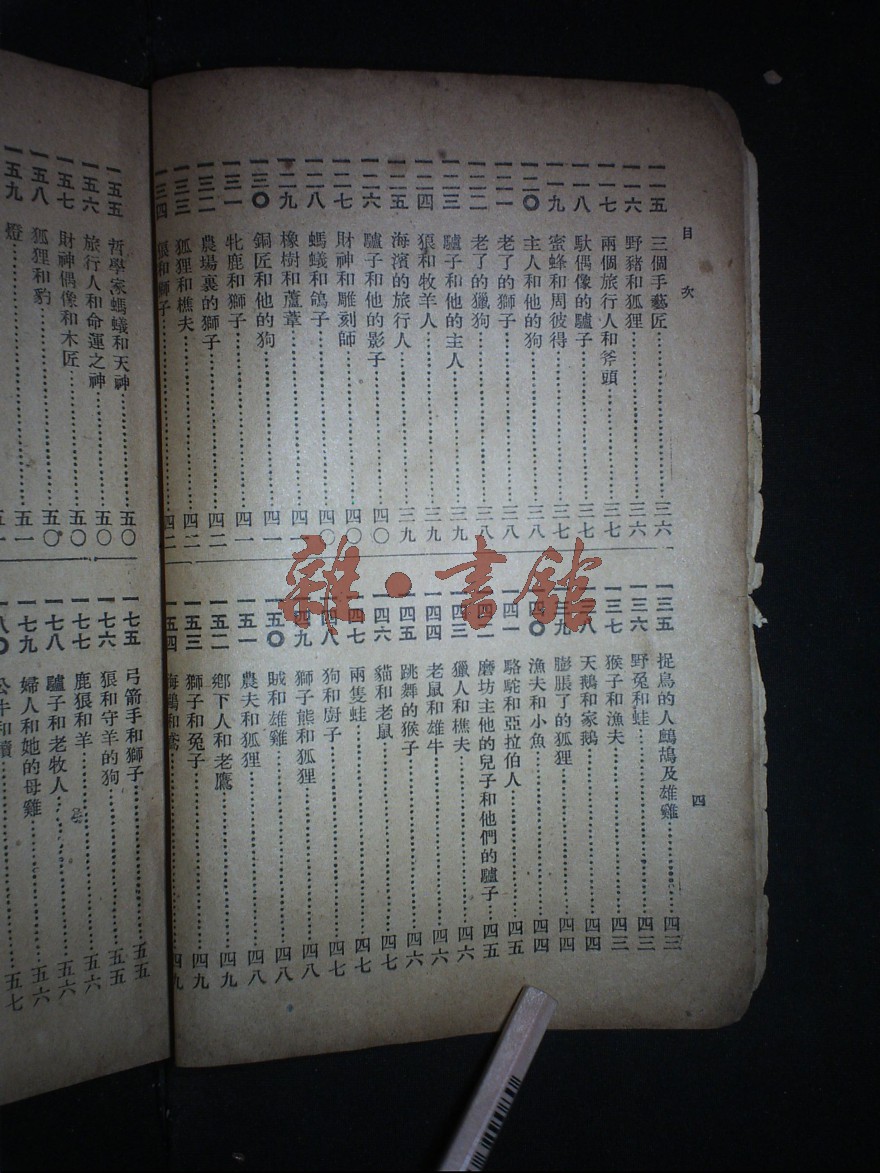 目次
四
一一五 三個手藝匠 三六
一一六 野豬和狐狸 三六
一一七 兩個旅行人和斧頭 三七
一一八 馱偶像的驢子 三七
一一九 蜜蜂和周彼得 三七
一二〇 主人和他的狗 三八
一二一 老了的獅子 三八
一二二 老了的獵狗 三八
一二三 驢子和他的主人 三九
一二四 狼和牧羊人 三九
一二五 海濱的旅行人 三九
一二六 驢子和他的影子 四〇
一二七 財神和雕刻師 四〇
一二八 螞蟻和鴿子 四〇
一二九 橡樹和蘆葦 四一
一三〇 銅匠和他的狗 四一
一三一 牝鹿和獅子 四一
一三二 農場裏的獅子 四二
一三三 狐狸和樵夫 四二
一三四 狼和獅子 四二
一三五 捉鳥的人鷓鴣及雄雞 四三
一三六 野兔和蛙 四三
一三七 猴子和漁夫 四三
一三八 天鵝和家鵝 四四
一三九 膨脹了的狐狸 四四
一四〇 漁夫和小魚 四四
一四一 駱駝和亞拉伯人 四五
一四二 磨坊主他的兒子和他們的驢子 四五
一四三 獵人和樵夫 四六
一四四 老鼠和雄牛 四六
一四五 跳舞的猴子 四六
一四六 貓和老鼠 四七
一四七 兩隻蛙 四七
一四八 狗和廚子 四七
一四九 獅子熊和狐狸 四八
一五〇 賊和雄雞 四八
一五一 農夫和狐狸 四八
一五二 鄉下人和老鷹 四九
一五三 獅子和兔子 四九
一五四 海鵝和鳶 四九
一五五 哲學家螞蟻和天神 五〇
一五六 旅行人和命運之神 五〇
一五七 財神偶像和木匠 五〇
一五八 狐狸和豹 五一
一五九 燈 五一
一七五 弓箭手和獅子 五五
一七六 狼和守羊的狗 五五
一七七 鹿狼和羊 五六
一七八 驢子和老牧人 五六
一七九 婦人和她的母雞 五六
一八〇 公牛和犢 五七
雜·書館